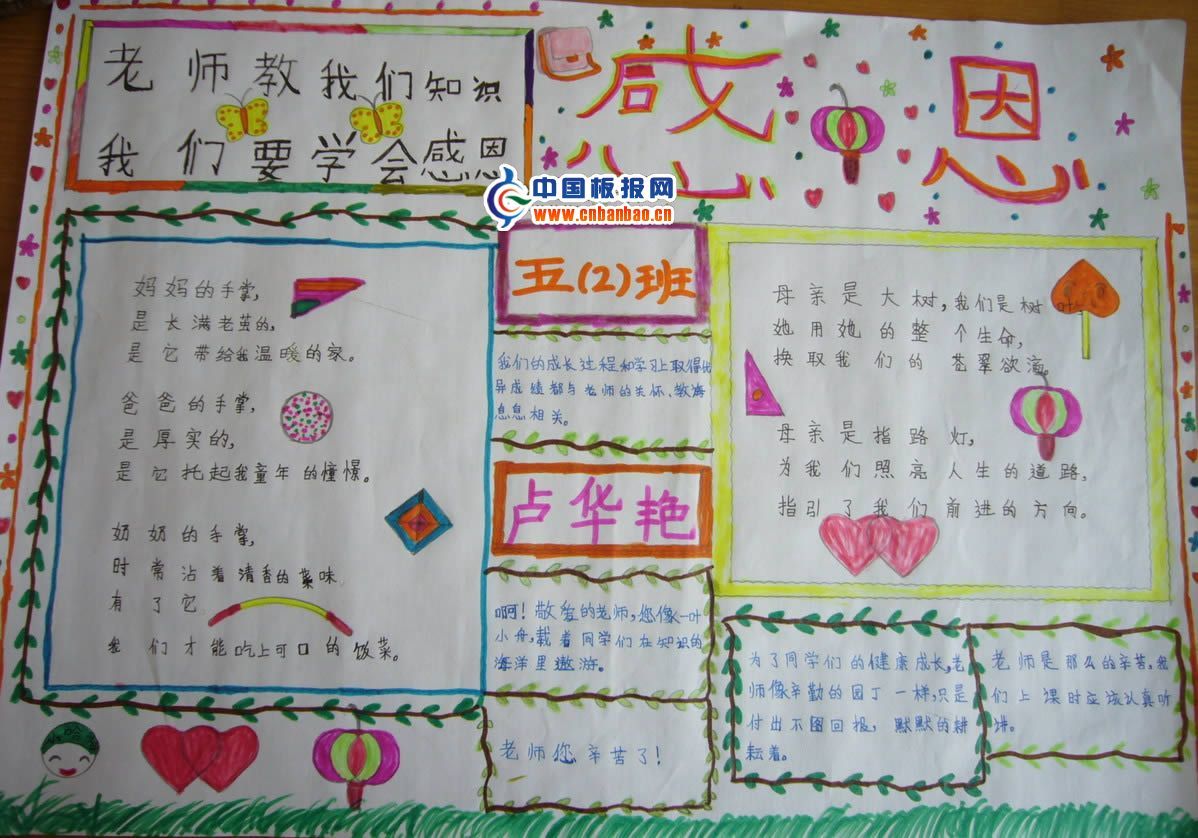 老师教我们知识
我们要学会感恩
感恩
中国板报网
www.cnbanbao.cn
妈妈的手掌,
是长满老茧的,
是它带给我温暖的家。
爸爸的手掌,
是厚实的,
是它托起我童年的憧憬。
奶奶的手掌,
时常沾着清香的菜味
有了它
我们才能吃上可口的饭菜。
五(2)班
我们的成长过程和学习上取得优
异成绩都与老师的关怀、教诲
息息相关。
卢华艳
啊!敬爱的老师,您像一叶
小舟,载着同学们在知识的
海洋里遨游。
老师您辛苦了!
母亲是大树,我们是树叶
她用她的整个生命,
换取我们的苍翠欲滴。
母亲是指路灯,
为我们照亮人生的道路,
指引了我们前进的方向。
为了同学们的健康成长,老
师像辛勤的园丁一样,只是
付出不图回报,默默的耕
耘着。
老师是那么的辛苦,我
们上课时应该认真听
讲。